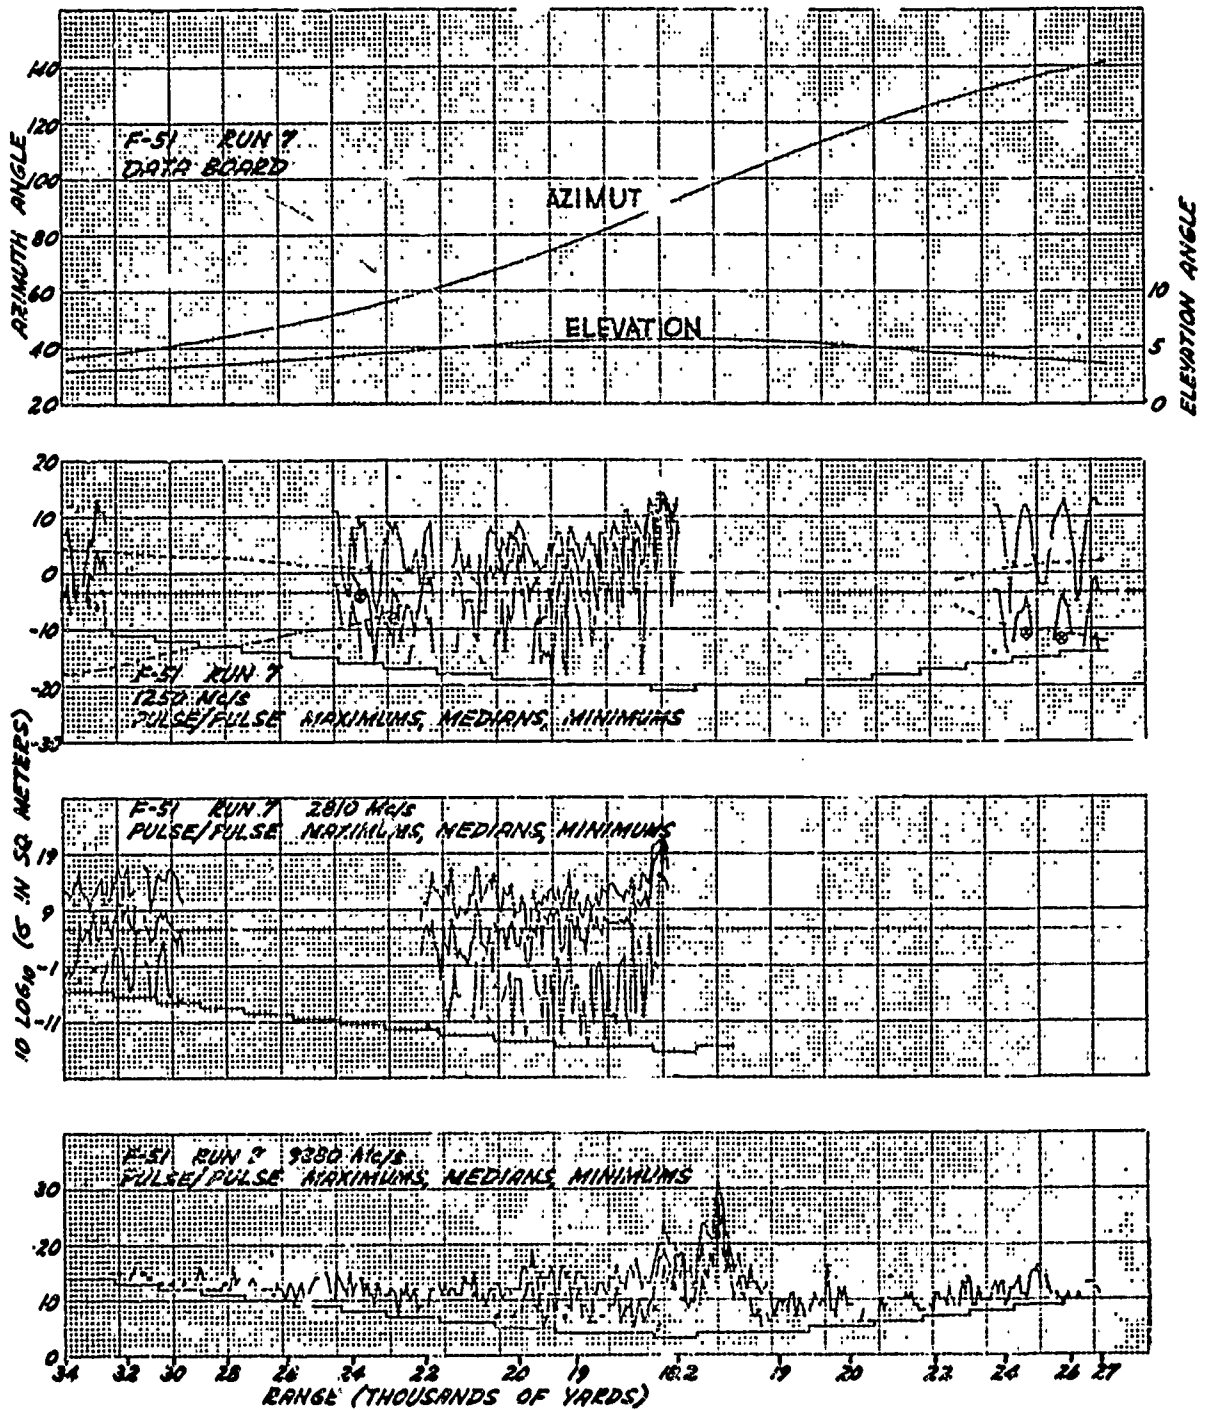 140
120
100
80
60
40
20
AZIMUTH ANGLE
F-51 RUN 7
DATA BOARD
AZIMUT
ELEVATION
10
5
0
ELEVATION ANGLE
20
10
0
-10
-20
-30
F-51 RUN 7
1250 Mc/s
PULSE/PULSE MAXIMUMS, MEDIANS, MINIMUMS
10 LOG10 (σ IN SQ METERS)
F-51 RUN 7 2810 Mc/s
PULSE/PULSE MAXIMUMS, MEDIANS, MINIMUMS
19
9
-1
-11
F-51 RUN 7 9380 Mc/s
PULSE/PULSE MAXIMUMS, MEDIANS, MINIMUMS
30
20
10
0
34 32 30 28 26 24 22 20 19 18.2 19 20 22 24 26 27
RANGE (THOUSANDS OF YARDS)